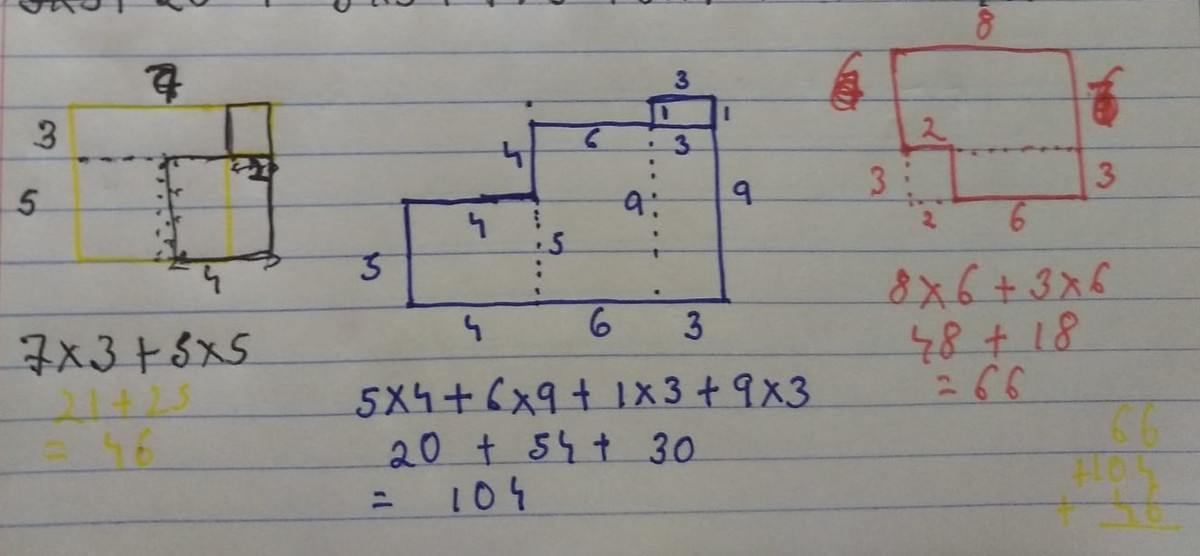 8
3
5
4
7x3+5x5
21+25
= 46
3
1
1
6
3
4
9
9
4
5
5
4
6
3
5x4+6x9+1x3+9x3
20 + 54 + 30
= 104
6
6
2
3
3
2
6
8x6+3x6
48 + 18
= 66
66
+104
+ 46